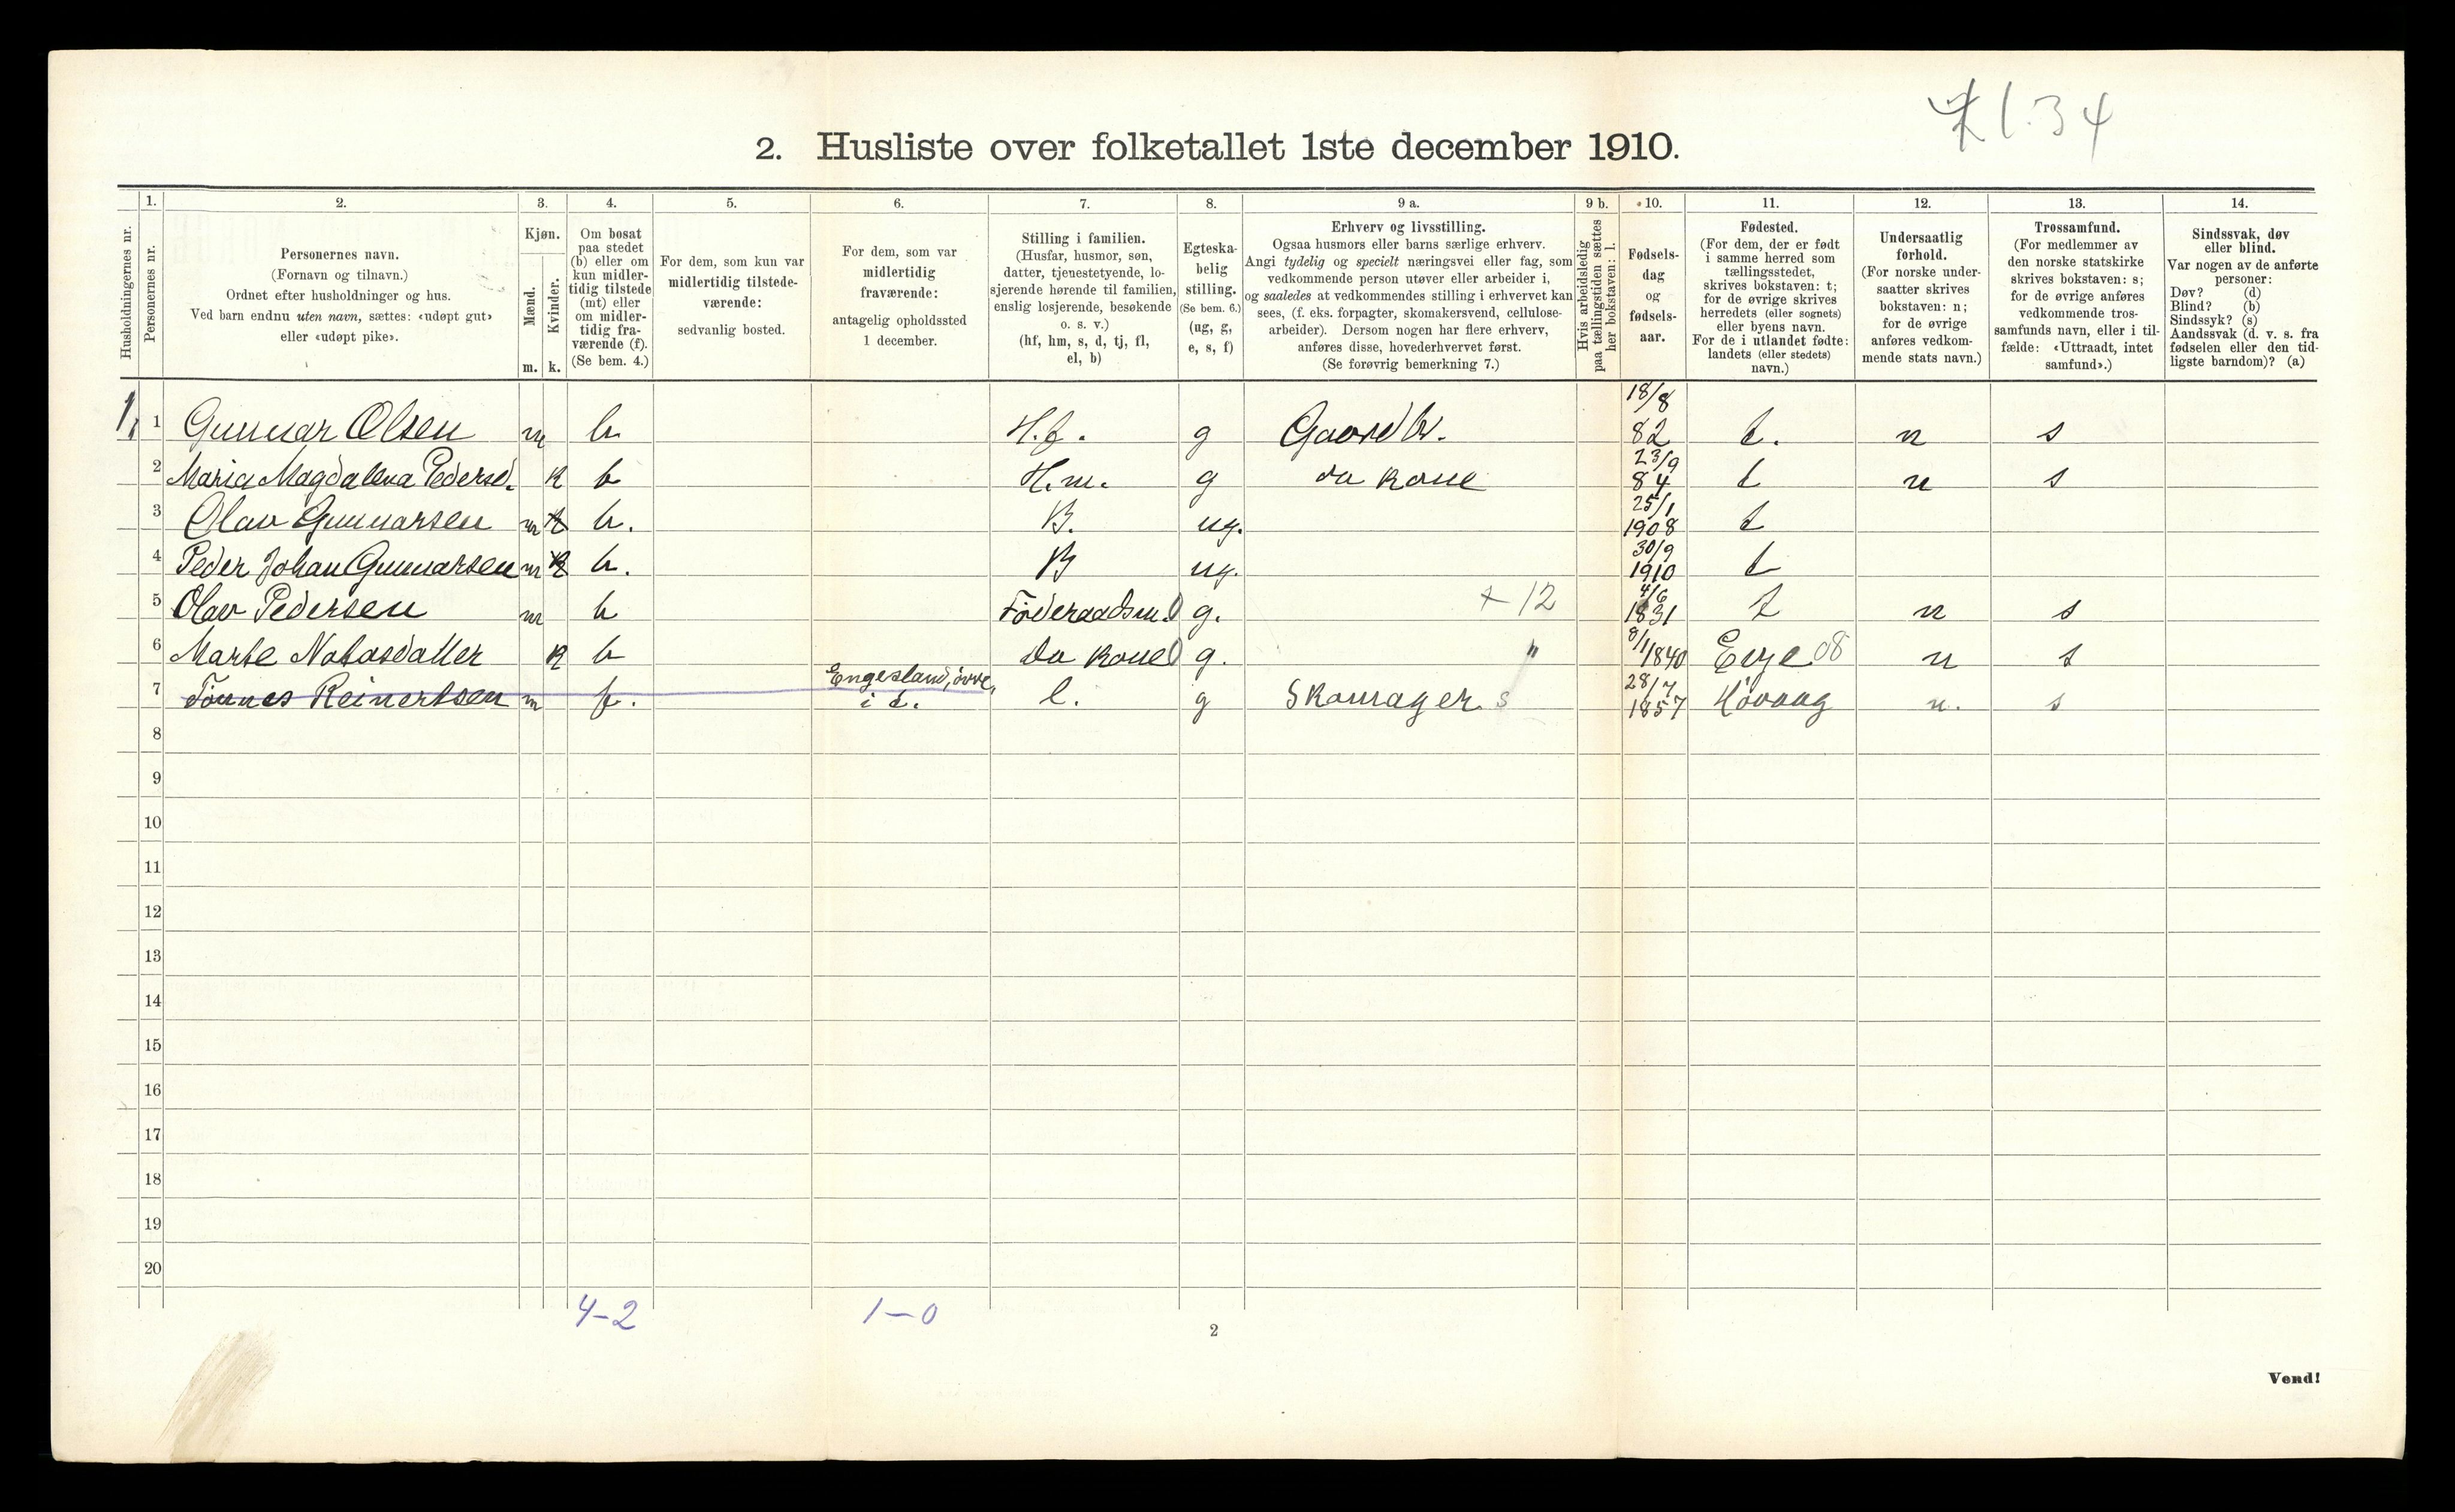 1.34
2. Husliste over folketallet 1ste december 1910.
1. 2. 3. 4. 5. 6. 7. 8. 9 a. 9 b. 10. 11. 12. 13. 14.
Husholdningernes nr.
Personernes nr.
Personernes navn.
(Fornavn og tilnavn.)
Ordnet efter husholdninger og hus.
Ved barn endnu uten navn, sættes: «udøpt gut»
eller «udøpt pike».
Kjøn.
Mænd.
Kvinder.
m. k.
Om bosat
paa stedet
(b) eller om
kun midler-
tidig tilstede
(mt) eller
om midler-
tidig fra-
værende (f).
(Se bem. 4.)
For dem, som kun var
midlertidig tilstede-
værende:
sedvanlig bosted.
For dem, som var
midlertidig
fraværende:
antagelig opholdssted
1 december.
Stilling i familien.
(Husfar, husmor, søn,
datter, tjenestetyende, lo-
sjerende hørende til familien,
enslig losjerende, besøkende
o. s. v.)
(hf, hm, s, d, tj, fl,
el, b)
Egteska-
belig
stilling.
(Se bem. 6.)
(ug, g,
e, s, f)
Erhverv og livsstilling.
Ogsaa husmors eller barns særlige erhverv.
Angi tydelig og specielt næringsvei eller fag, som
vedkommende person utøver eller arbeider i,
og saaledes at vedkommendes stilling i erhvervet kan
sees, (f. eks. forpagter, skomakersvend, cellulose-
arbeider). Dersom nogen har flere erhverv,
anføres disse, hovederhvervet først.
(Se forøvrig bemerkning 7.)
Hvis arbeidsledig
paa tællingstiden sættes
her bokstaven: l.
Fødsels-
dag
og
fødsels-
aar.
Fødested.
(For dem, der er født
i samme herred som
tællingsstedet,
skrives bokstaven: t;
for de øvrige skrives
herredets (eller sognets)
eller byens navn.
For de i utlandet fødte:
landets (eller stedets)
navn.)
Undersaatlig
forhold.
(For norske under-
saatter skrives
bokstaven: n;
for de øvrige
anføres vedkom-
mende stats navn.)
Trossamfund.
(For medlemmer av
den norske statskirke
skrives bokstaven: s;
for de øvrige anføres
vedkommende tros-
samfunds navn, eller i til-
fælde: «Uttraadt, intet
samfund».)
Sindssvak, døv
eller blind.
Var nogen av de anførte
personer:
Døv? (d)
Blind? (b)
Sindssyk? (s)
Aandssvak (d. v. s. fra
fødselen eller den tid-
ligste barndom)? (a)
1. 1 Gunnar Olsen m b H.f. g Gaardbr. 18/8 82 t. n s
2 Maria Magdalena Pedersd. k b H.m. g da kone 23/9 84 t n s
3 Olav Gunnarsen m k b. B. ug. 25/1 1908 t
4 Peder Johan Gunnarsen m k b. B ug. 30/9 1910 t
5 Olav Pedersen m b Føderaadsm. g. + 12 4/6 1831 t n s
6 Marte Notosdatter k b da kone g. " 8/1 1840 Evje 08 n s
7 Tønnes Reinertsen m f. Engesland, øvre, i t. l. g Skomager s 28/7 1857 Høvaag n. s
8
9
10
11
12
13
14
15
16
17
18
19
20
4-2 1-0
2
Vend!